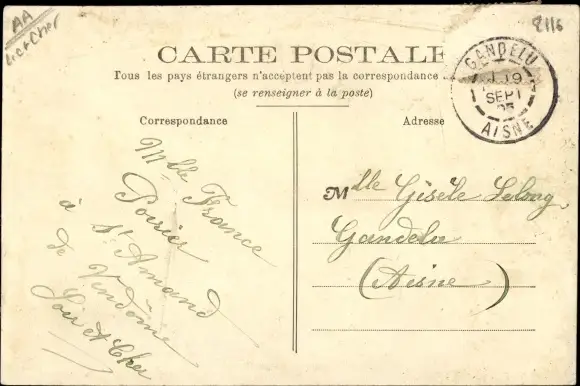 AA
Loir et Cher
8116
CARTE POSTALE
Tous les pays étrangers n'acceptent pas la correspondance
(se renseigner à la poste)
GANDELU
19
SEPT
05
AISNE
Correspondance
Adresse
Mlle France
Poirier
à St Amand
de Vendôme
Loir et Cher
Mlle Gisèle Lelong
Gandelu
(Aisne)